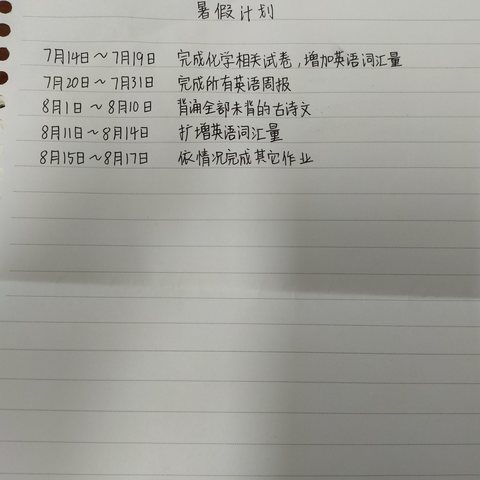 暑假计划
7月14日~7月19日 完成化学相关试卷,增加英语词汇量
7月20日~7月31日 完成所有英语周报
8月1日~8月10日 背诵全部未背的古诗文
8月11日~8月14日 扩增英语词汇量
8月15日~8月17日 依情况完成其它作业